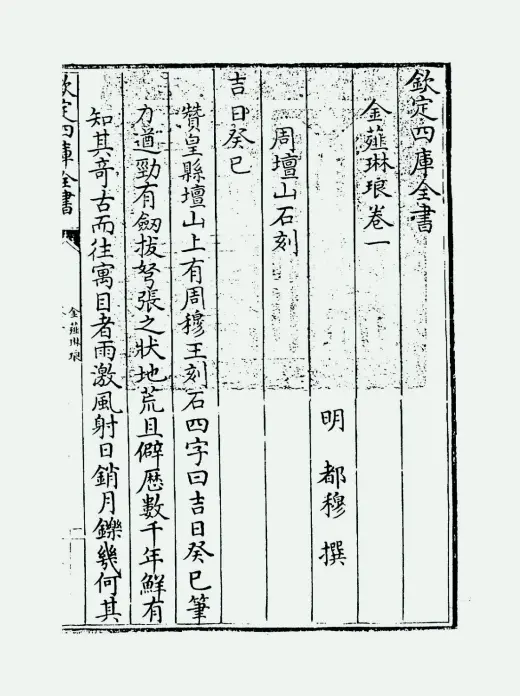 欽定四庫全書
金薤琳琅卷一
明 都穆 撰
周壇山石刻
吉日癸巳
贊皇縣壇山上有周穆王刻石四字曰吉日癸巳筆
力遒勁有劒拔弩張之狀地荒且僻歷數千年鮮有
知其奇古而往寓目者雨激風射日銷月鑠幾何其
欽定四庫全書
金薤琳琅